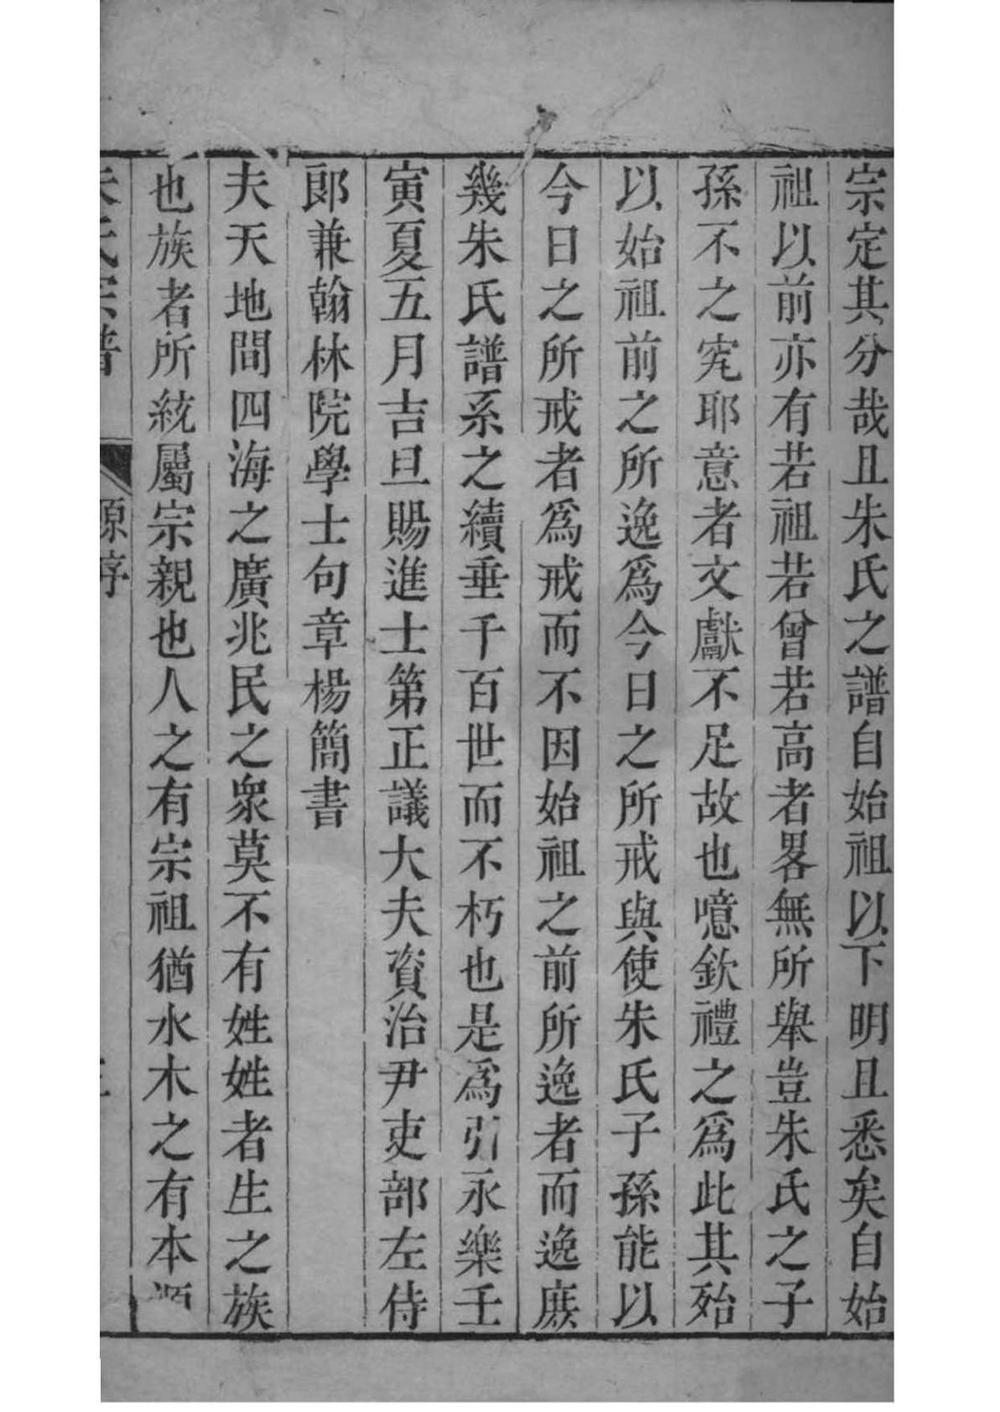 宗定其分哉且朱氏之譜自始祖以下明且悉矣自始
祖以前亦有若祖若曾若高者畧無所舉豈朱氏之子
孫不之究耶意者文獻不足故也噫欽禮之爲此其殆
以始祖前之所逸爲今日之所戒與使朱氏子孫能以
今日之所戒者爲戒而不因始祖之前所逸者而逸庶
幾朱氏譜系之續垂千百世而不朽也是爲引永樂壬
寅夏五月吉旦賜進士第正議大夫資治尹吏部左侍
郎兼翰林院學士句章楊簡書
夫天地間四海之廣兆民之衆莫不有姓姓者生之族
也族者所統屬宗親也人之有宗祖猶水木之有本源
朱氏宗譜
源序